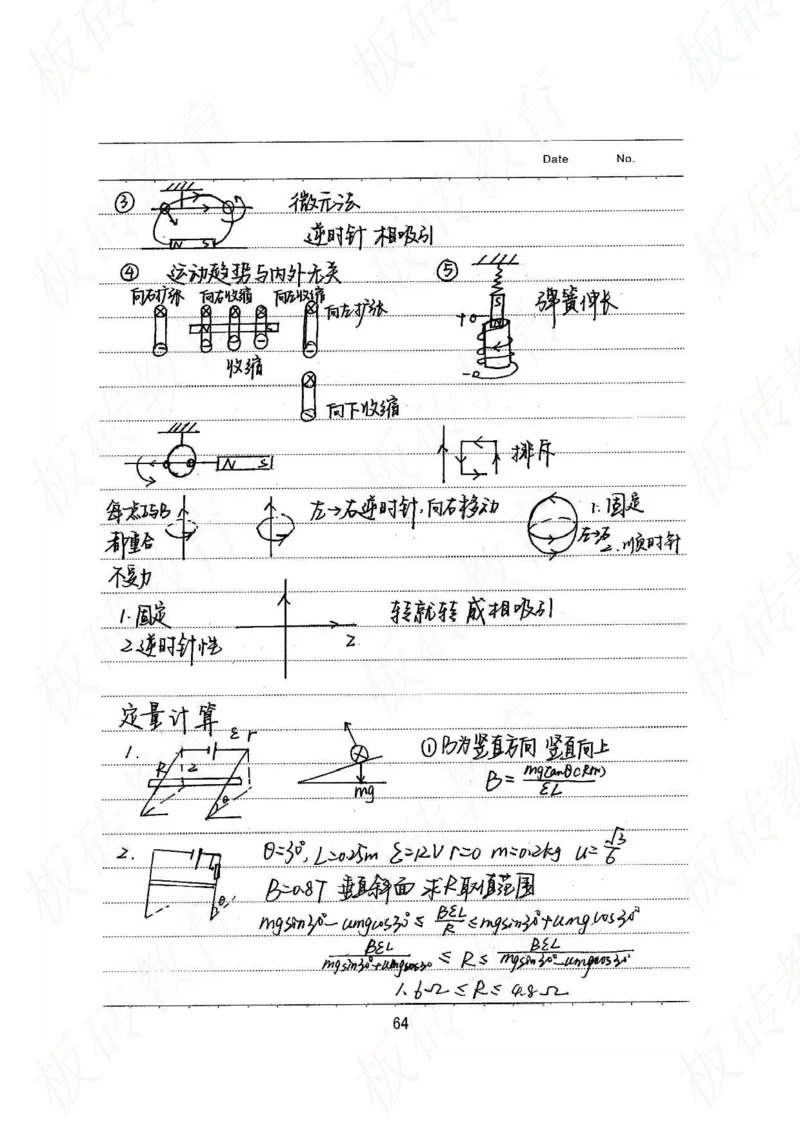 Date No.
③ 微元法
N S
逆时针 相吸引
④ 运动趋势与内外无关 ⑤
向右扩张 向右收缩 向左收缩 向左扩张
N S
收缩
向下收缩
S
N
弹簧伸长
N S
排斥
每点I与B
都重合
不受力
左→右逆时针,向右移动
1.固定
左→右
2.顺时针
1.固定
2.逆时针性
转就转成相吸引
2
定量计算
1.
ε r
R 2
θ
mg
①B为竖直方向 竖直向上
B= mgtanθ(R+r)/εL
2.
θ
θ=30°, L=0.25m ε=12V r=0 m=0.2kg u=√3/6
B=0.8T 垂直斜面 求R取值范围
mgsin30°-umgcos30°≤ BεL/R ≤mgsin30°+umgcos30°
BεL/mgsin30°+umgcos30° ≤ R ≤ BεL/mgsin30°-umgcos30°
1.6Ω ≤R≤ 4.8Ω
64
板砖教育